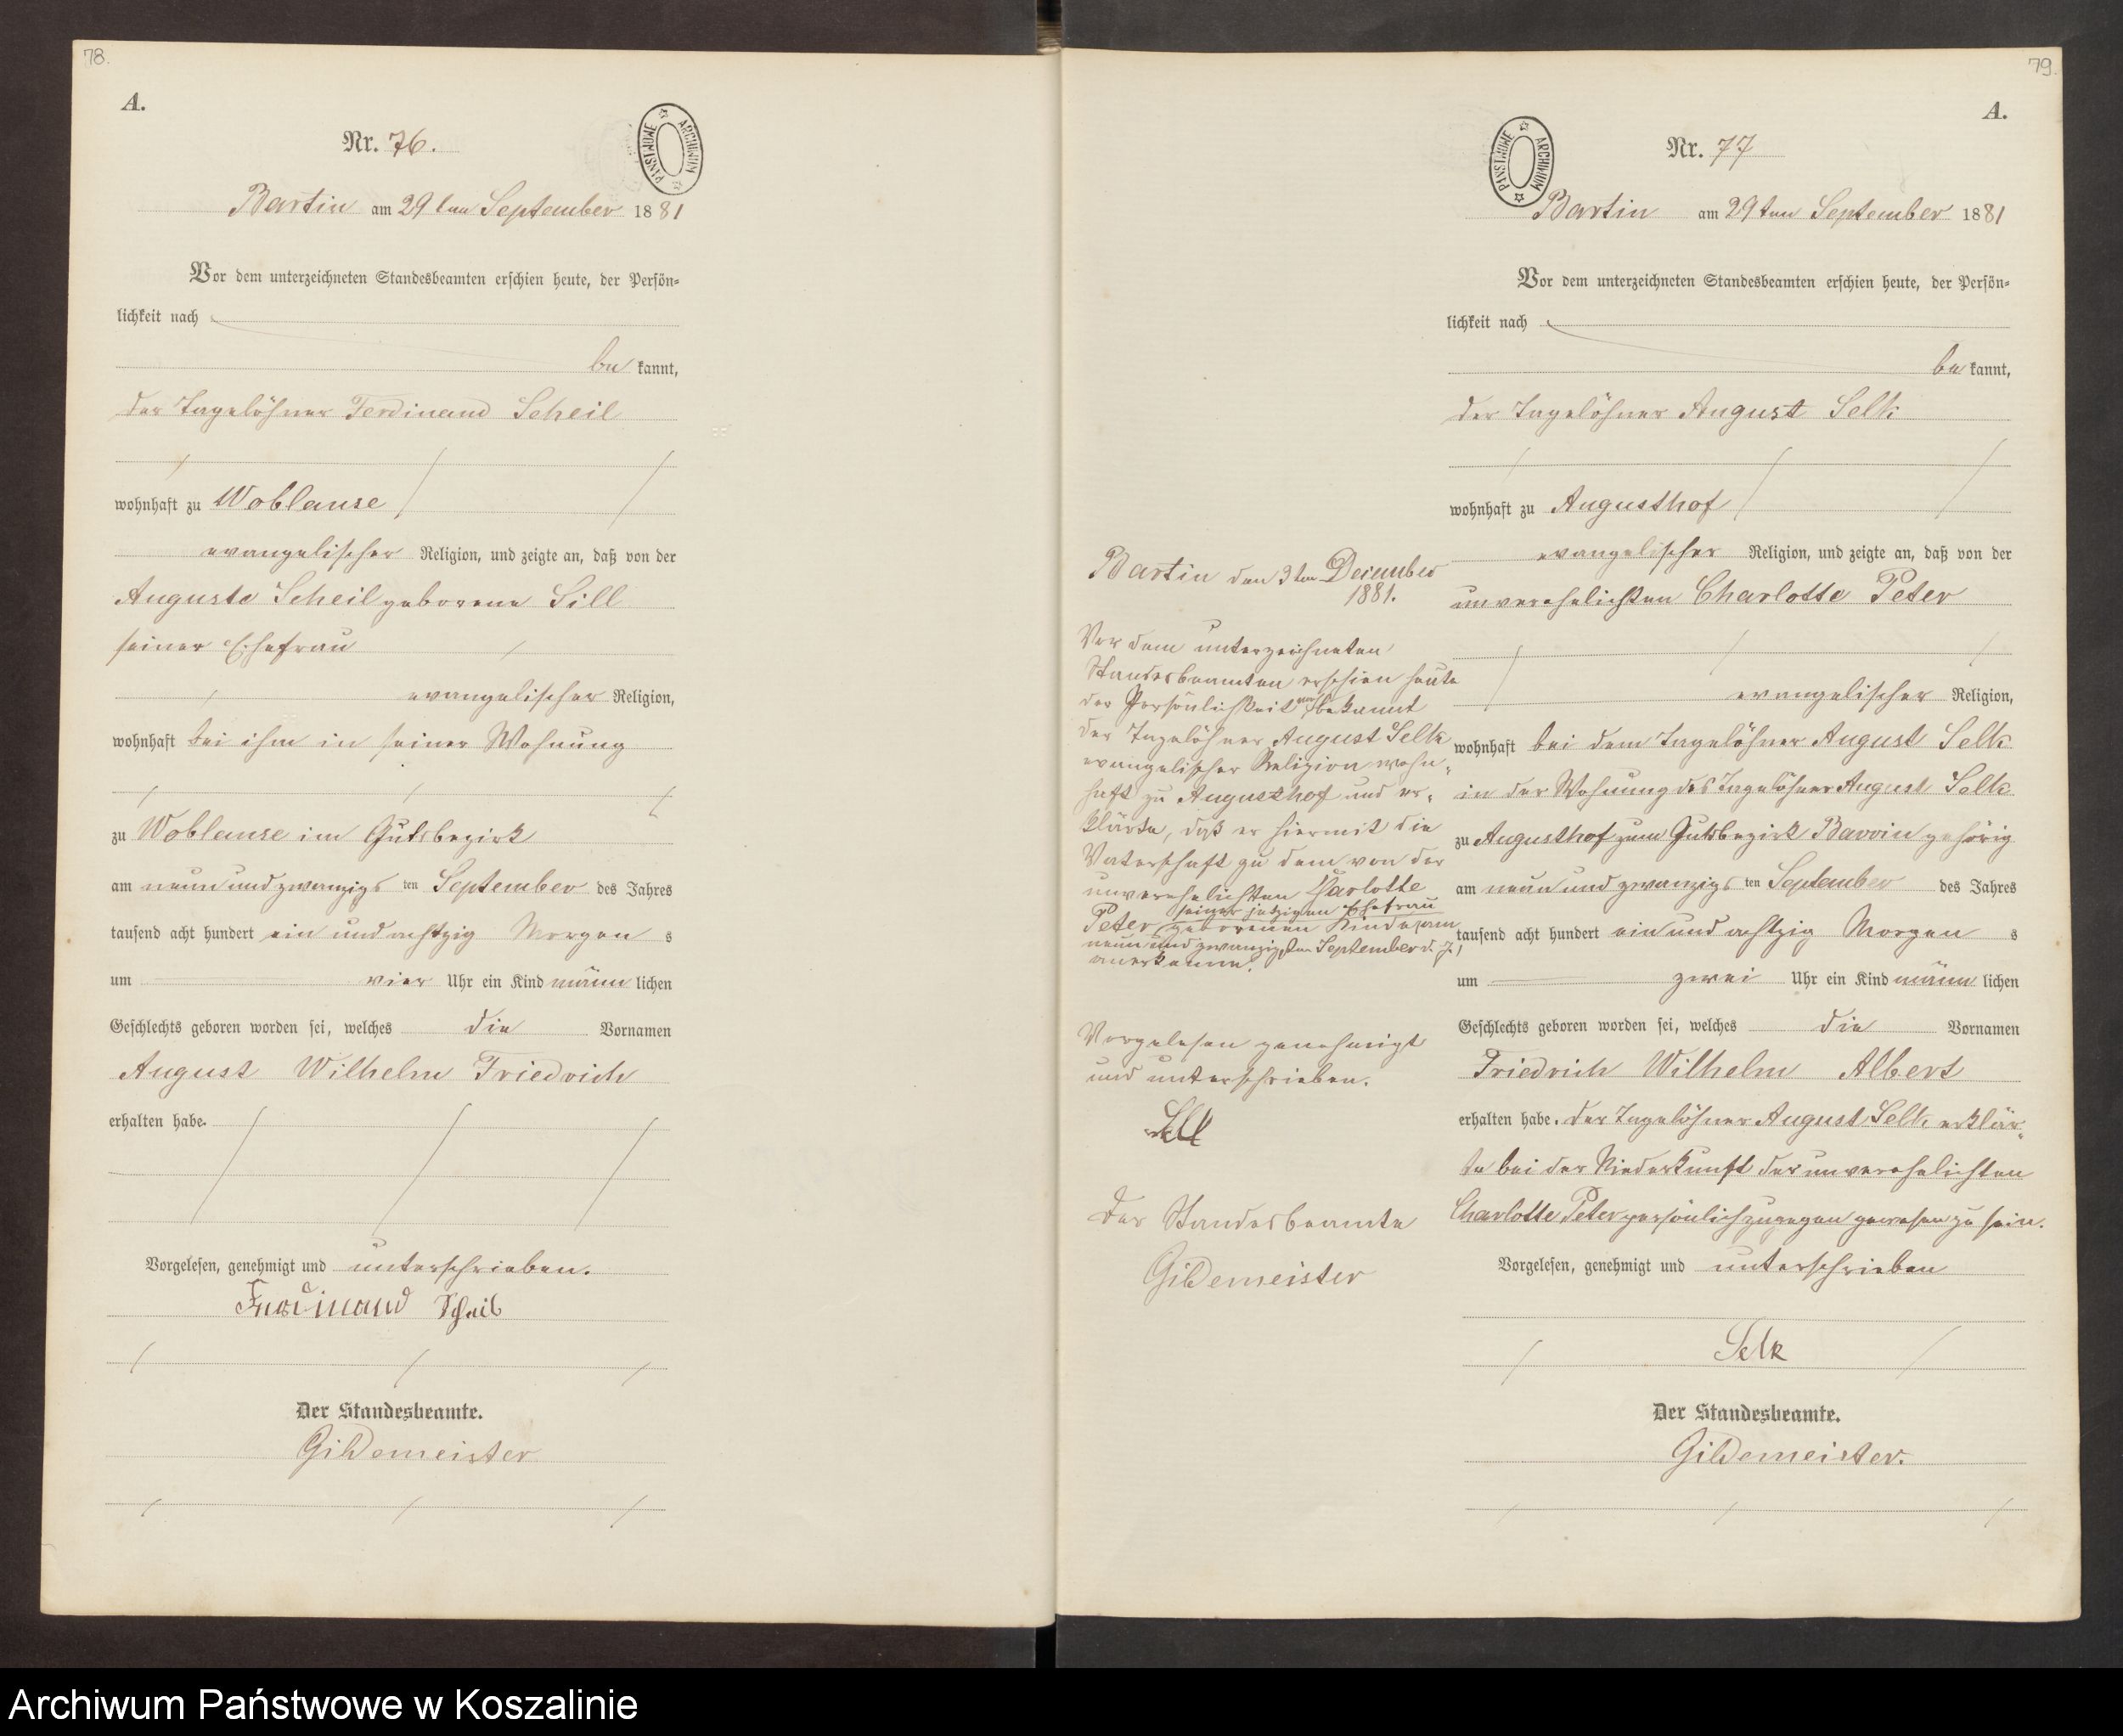 78.
A.
Nr. 76.
ARCHIWUM PAŃSTWOWE
Bartin am 29ten September 1881
Vor dem unterzeichneten Standesbeamten erschien heute, der Persön-
lichkeit nach
be kannt,
der Tagelöhner Ferdinand Scheil
wohnhaft zu Woblanse
evangelischer Religion, und zeigte an, daß von der
Auguste Scheil geborene Sill
seiner Ehefrau
evangelischer Religion,
wohnhaft bei ihm in seiner Wohnung
zu Woblanse im Gutsbezirk
am neunundzwanzigs ten September des Jahres
tausend acht hundert ein und achtzig Morgen s
um vier Uhr ein Kind männ lichen
Geschlechts geboren worden sei, welches die Vornamen
August Wilhelm Friedrich
erhalten habe.
Vorgelesen, genehmigt und unterschrieben.
Ferdinand Scheil
Der Standesbeamte.
Gildemeister
79.
A.
Nr. 77
ARCHIWUM PAŃSTWOWE
Bartin am 29ten September 1881
Vor dem unterzeichneten Standesbeamten erschien heute, der Persön-
lichkeit nach
be kannt,
der Tagelöhner August Selk
wohnhaft zu Augusthof
evangelischer Religion, und zeigte an, daß von der
unverehelichten Charlotte Peter
evangelischer Religion,
wohnhaft bei dem Tagelöhner August Selk
in der Wohnung des Tagelöhner August Selk
zu Augusthof zum Gutsbezirk Barvin gehörig
am neunundzwanzigs ten September des Jahres
tausend acht hundert ein und achtzig Morgen s
um zwei Uhr ein Kind männ lichen
Geschlechts geboren worden sei, welches die Vornamen
Friedrich Wilhelm Albert
erhalten habe. Der Tagelöhner August Selk erklär-
te bei der Niederkunft der unverehelichten
Charlotte Peter persönlich zugegen gewesen zu sein.
Vorgelesen, genehmigt und unterschrieben
Selk
Der Standesbeamte.
Gildemeister.
Bartin den 3ten December
1881.
Vor dem unterzeichneten
Standesbeamten erschien heute
der Persönlichkeit nach bekannt
der Tagelöhner August Selk
evangelischer Religion wohn-
haft zu Augusthof und er-
klärte, daß er hiermit die
Vaterschaft zu dem von der
unverehelichten Charlotte
seiner jetzigen Ehefrau
Peter geborenen Kinde am
neun und zwanzigsten September d. J.
anerkenne.
Vorgelesen genehmigt
und unterschrieben.
Selk
Der Standesbeamte
Gildemeister
Archiwum Państwowe w Koszalinie